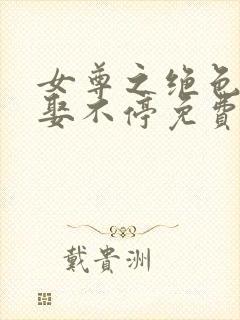 女尊之绝色
娶不停免費
戴貴洲